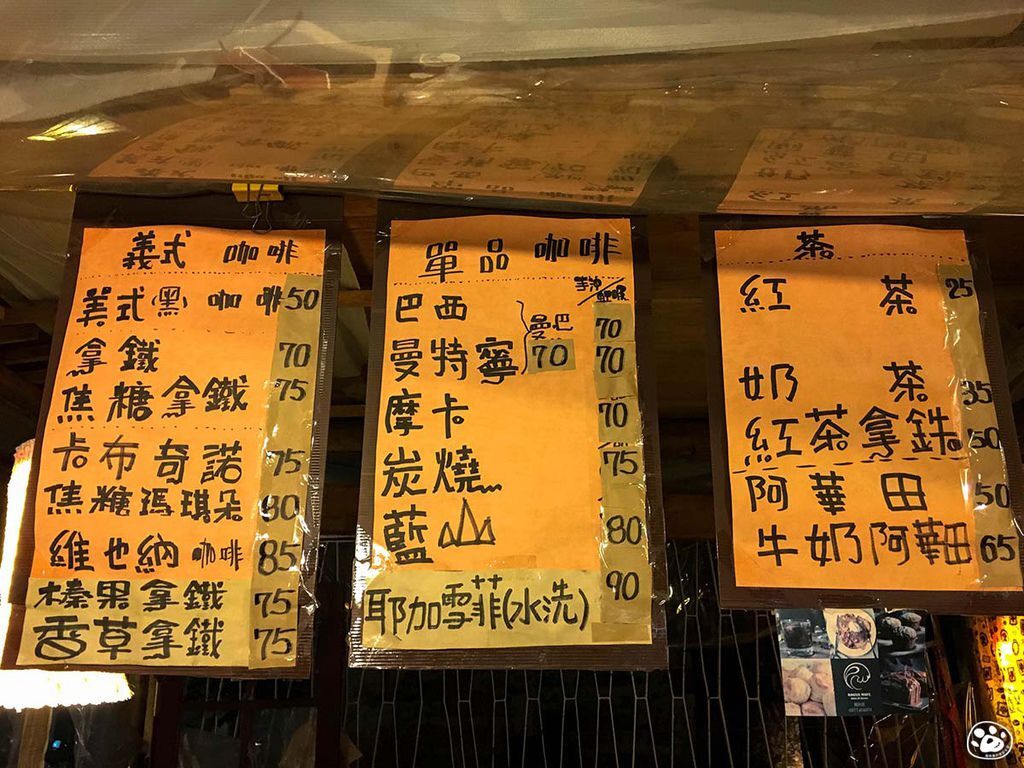 義式 咖啡
美式(黑)咖啡 50
拿鐵 70
焦糖拿鐵 75
卡布奇諾 75
焦糖瑪琪朵 80
維也納咖啡 85
榛果拿鐵 75
香草拿鐵 75
單品 咖啡
手沖
巴西 70
曼巴 70
曼特寧 70
摩卡 70
炭燒 75
藍 80
耶加雪菲(水洗) 90
茶
紅茶 25
奶茶 35
紅茶拿鉄 50
阿華田 50
牛奶阿華田 65